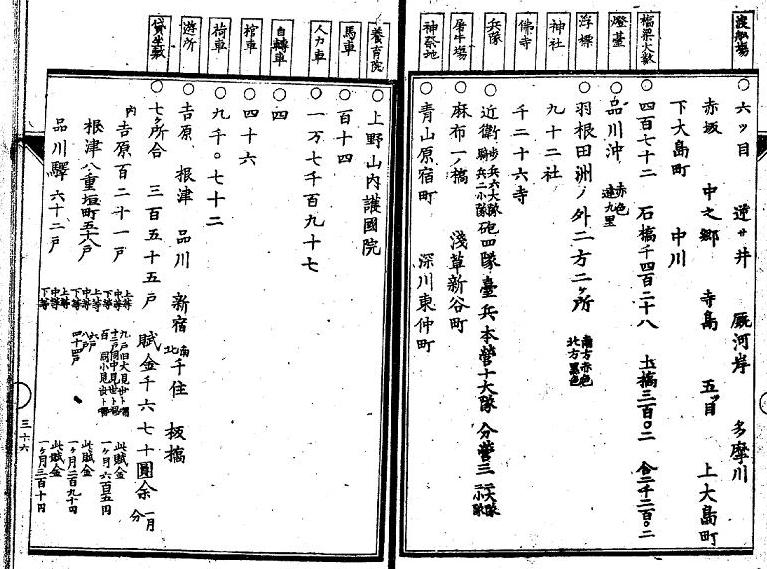 渡船場
○六ッ目 逆サ井 厩河岸 多摩川
赤坂 中之郷 寺島 五ッ目 上大島町
下大島町 中川
橋梁大數
○四百七十二 石橋千四百二十八 土橋三百〇二 合二千二百〇二
燈臺
○品川沖 赤色 達九里
浮標
○羽根田洲ノ外二方二ヶ所 南方赤色 北方黒色
神社
九十二社
佛寺
千二十六寺
兵隊
○近衛 歩兵六大隊 騎兵二小隊 砲四隊 臺兵本營十大隊 分營三 二大隊 二小隊
屠牛場
○麻布一ノ橋 淺草新谷町
神祭地
○青山原宿町 深川東仲町
養育院
○上野山内護國院
馬車
○百十四
人力車
○一万七千百九十七
自轉車
○四
棺車
○四十六
荷車
○九千〇七十二
遊所
○吉原 根津 品川 新宿 南北千住 板橋
貸坐敷
○七ヶ所合 三百五十五戸 賦金千六百七十圓余 一月分
内 吉原百二十一戸 上等 中等 下等 此賦金 一ヶ月六百五円
根津八重垣町五十八戸 上等 中等 下等 此賦金 一ヶ月二百九十円
品川驛六十二戸 上等 中等 下等 四十四戸 此賦金 一ヶ月三百十円
三十六